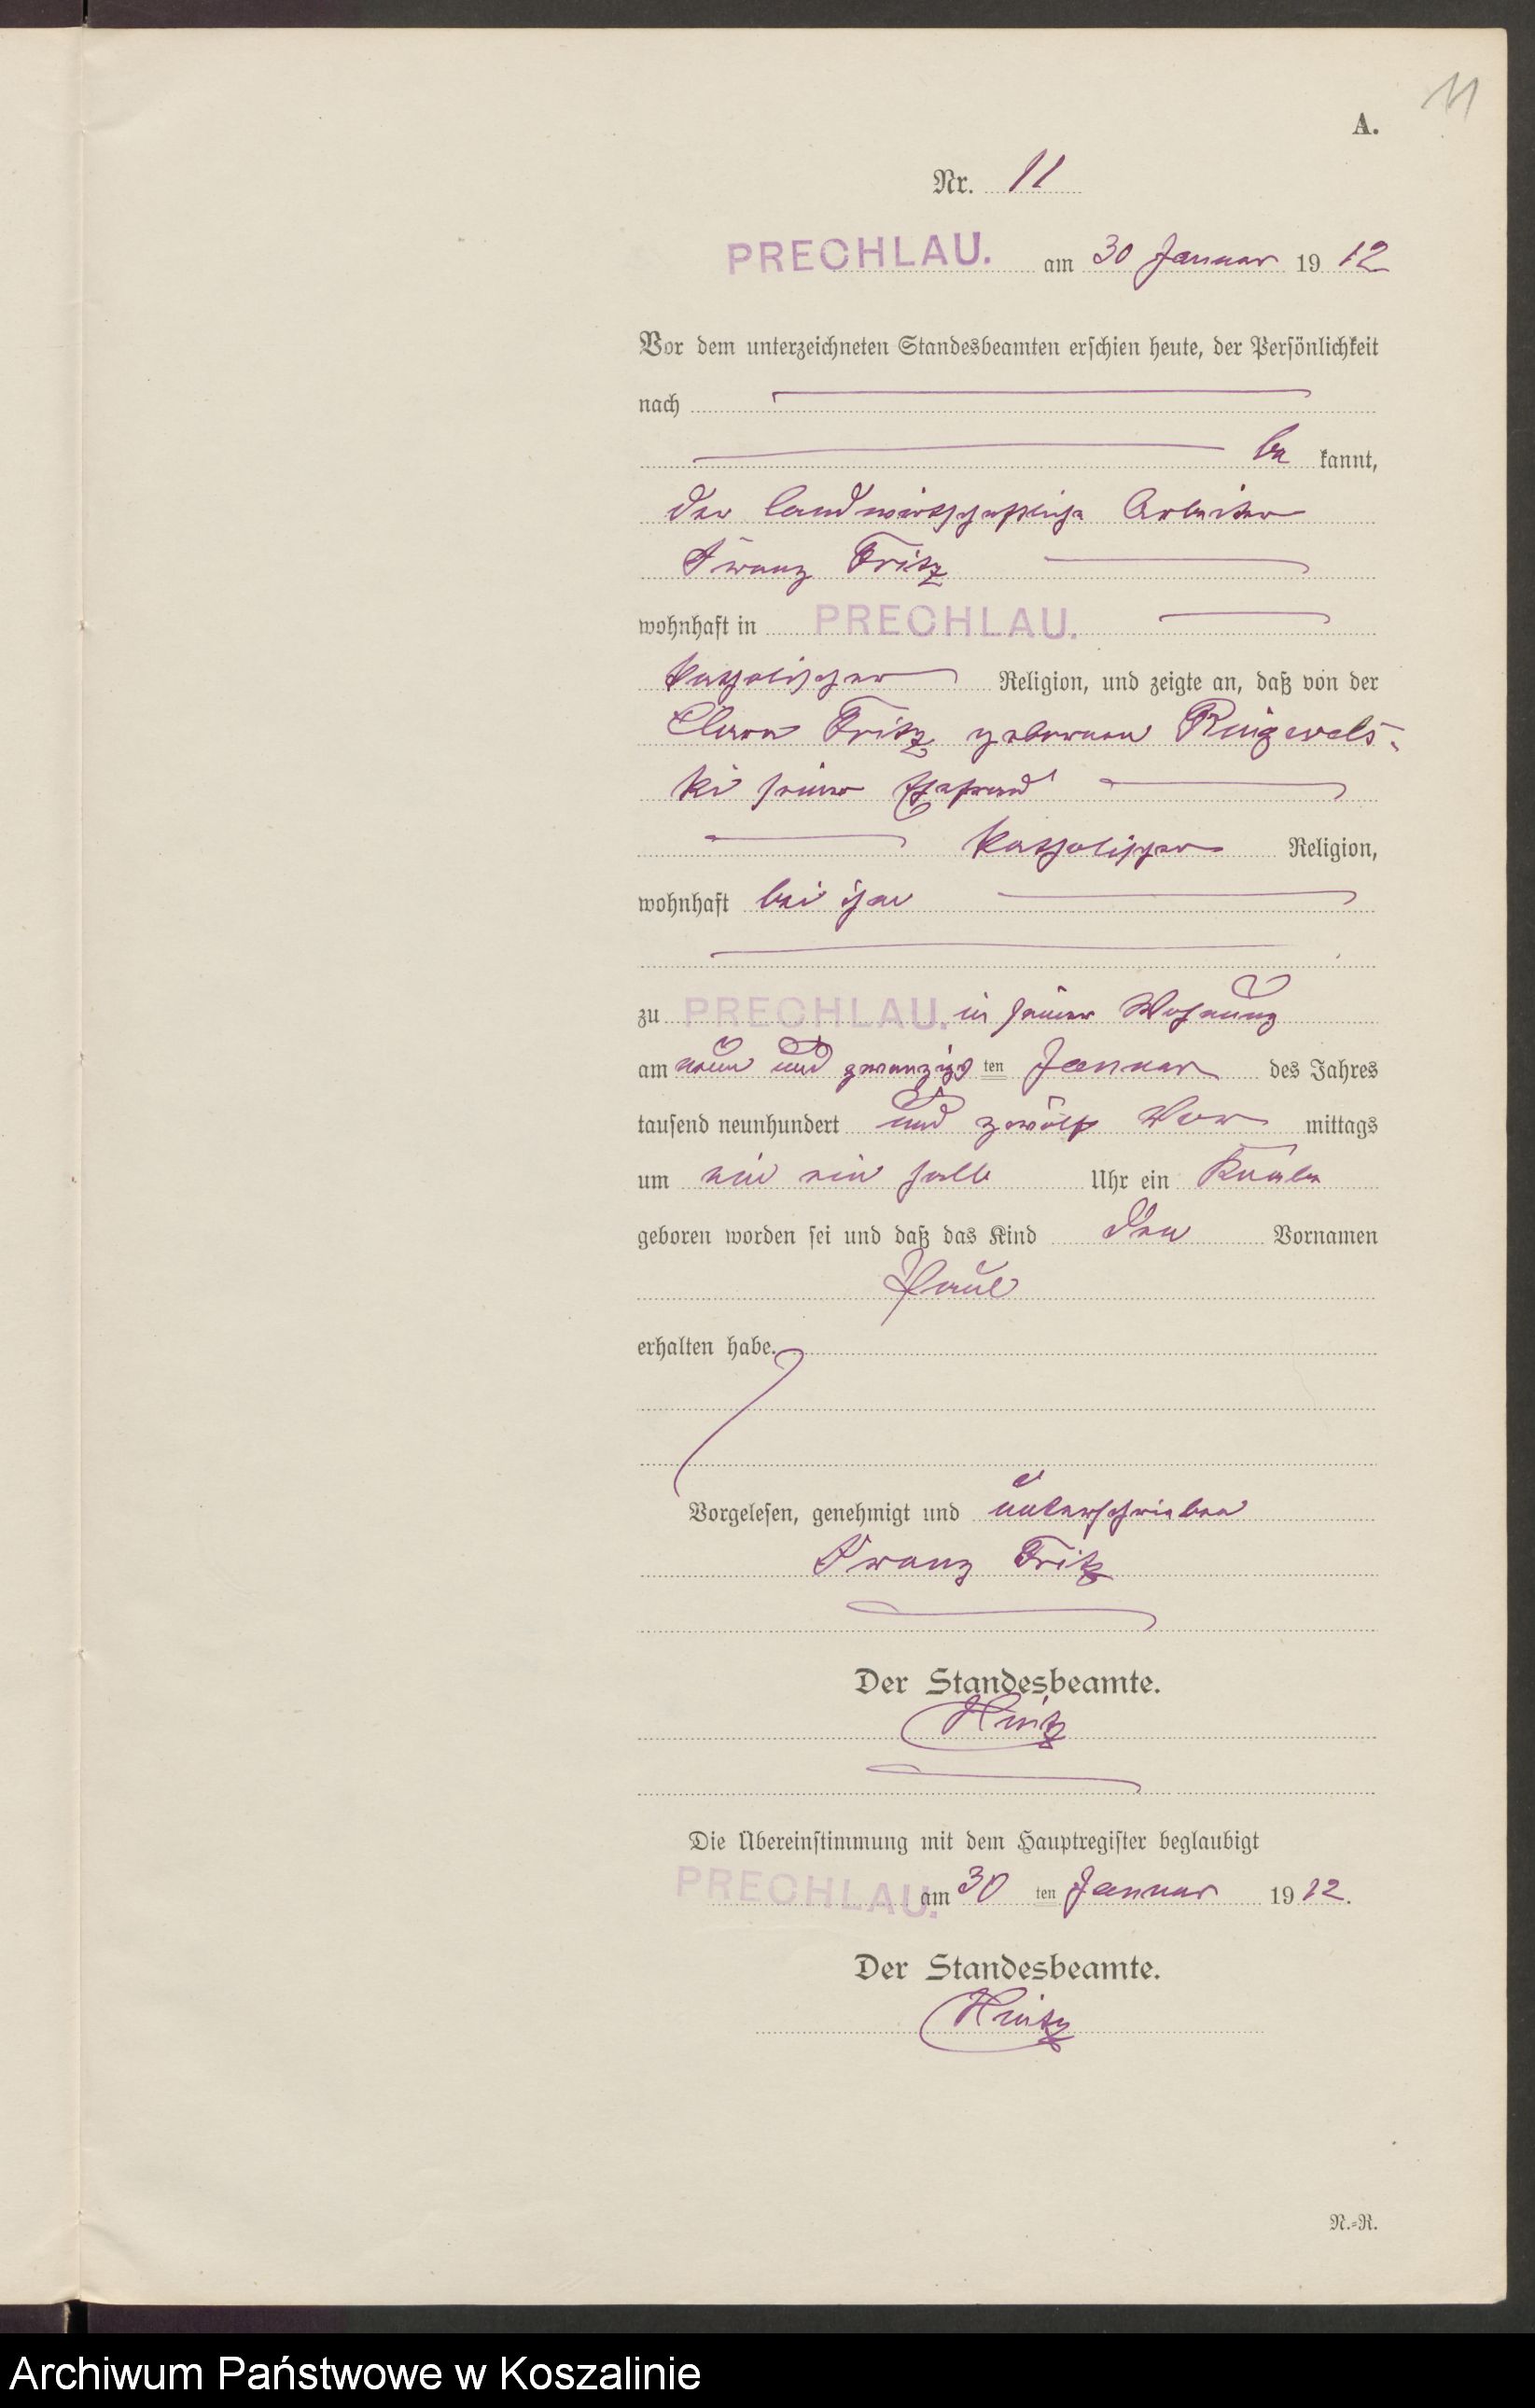 11
A.
Nr. 11
PRECHLAU. am 30 Januar 1912
Vor dem unterzeichneten Standesbeamten erschien heute, der Persönlichkeit
nach
be kannt,
der landwirtschaftliche Arbeiter
Franz Fritz
wohnhaft in PRECHLAU.
katholischer Religion, und zeigte an, daß von der
Clara Fritz geborenen
ki seiner Ehefrau
katholischer Religion,
wohnhaft bei ihm
zu PRECHLAU. in seiner Wohnung
am neun und zwanzigsten Januar des Jahres
tausend neunhundert und zwölf Vor mittags
um ein halb Uhr ein Knabe
geboren worden sei und daß das Kind den Vornamen
Paul
erhalten habe.
Vorgelesen, genehmigt und unterschrieben
Franz Fritz
Der Standesbeamte.
Hintz
Die Übereinstimmung mit dem Hauptregister beglaubigt
PRECHLAU. am 30 ten Januar 1912.
Der Standesbeamte.
Hintz
N.=R.
Archiwum Państwowe w Koszalinie